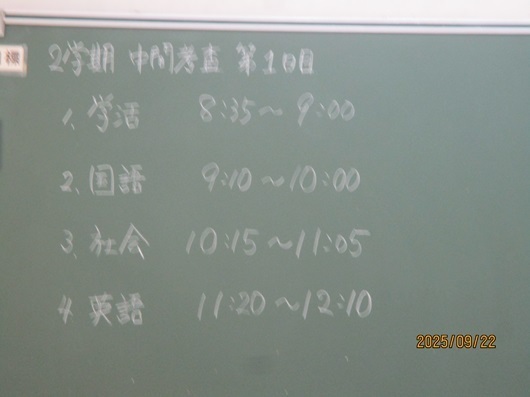 2学期 中間考査 第1日目
1. 学活 8:35～9:00
2. 国語 9:10～10:00
3. 社会 10:15～11:05
4. 英語 11:20～12:10
2025/09/22